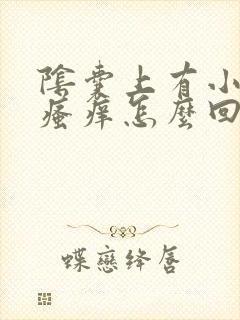 陰囊上有小
瘙癢怎麼回
蝶戀絳唇